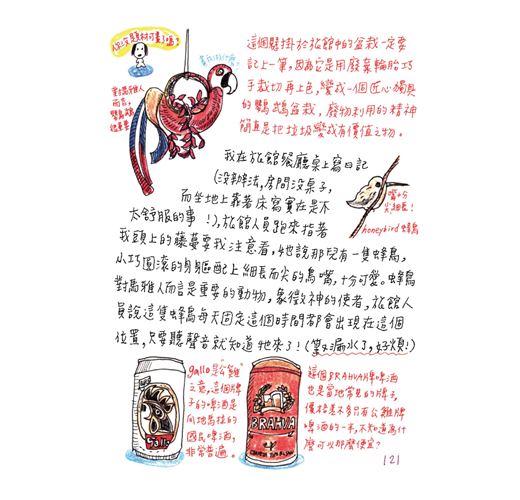 你沒題材可畫了嗎?
這個懸掛於旅館中的盆栽一定要
記上一筆,因為它是用廢棄輪胎巧
手裁切再上色,變成一個匠心獨具
的鸚鵡盆栽,廢物利用的精神
簡直是把垃圾變成有價值之物。
對馬雅人
而言,
鸚鵡
很重要
我在旅館餐廳桌上寫日記
(沒辦法,房間沒桌子,
而坐地上靠著床寫實在是不
太舒服的事!),旅館人員跑來指著
我頭上的藤蔓要我注意看,她說那兒有一隻蜂鳥,
小巧圓滾的身軀配上細長而尖的鳥嘴,十分可愛。蜂鳥
對馬雅人而言是重要的動物,象徵神的使者,旅館人
員說這隻蜂鳥每天固定這個時間都會出現在這個
位置,只要聽聲音就知道牠來了!(筆又漏水了,好煩!)
嘴十分
尖細長!
honeybird 蜂鳥
gallo是"公雞"
之意,這個牌
子的啤酒是
瓜地馬拉的
國民啤酒,
非常普遍。
Gallo
這個BRAHVA牌啤酒
也是當地常見的牌子,
價格差不多只有公雞牌
啤酒的一半,不知道為什
麼可以那麼便宜?
BRAHVA
121